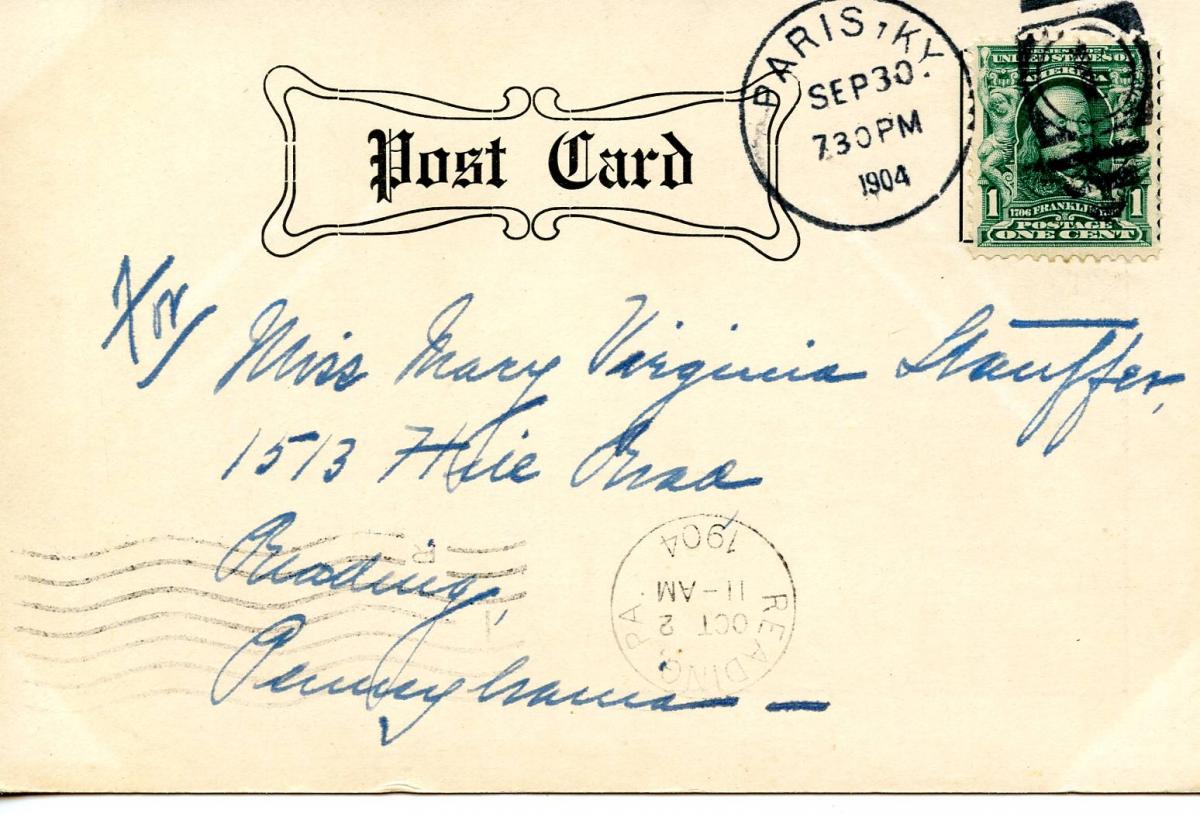 PARIS, KY.
SEP 30.
730 PM
1904
SERIES 1902
UNITED STATES OF
AMERICA
1 1
1706 FRANKLIN
POSTAGE
ONE CENT
Post Card
Miss Mary Virginia Stauffer,
1513 Hill Road
Reading,
Pennsylvania —
READING, PA.
OCT 2
11-AM
1904
R